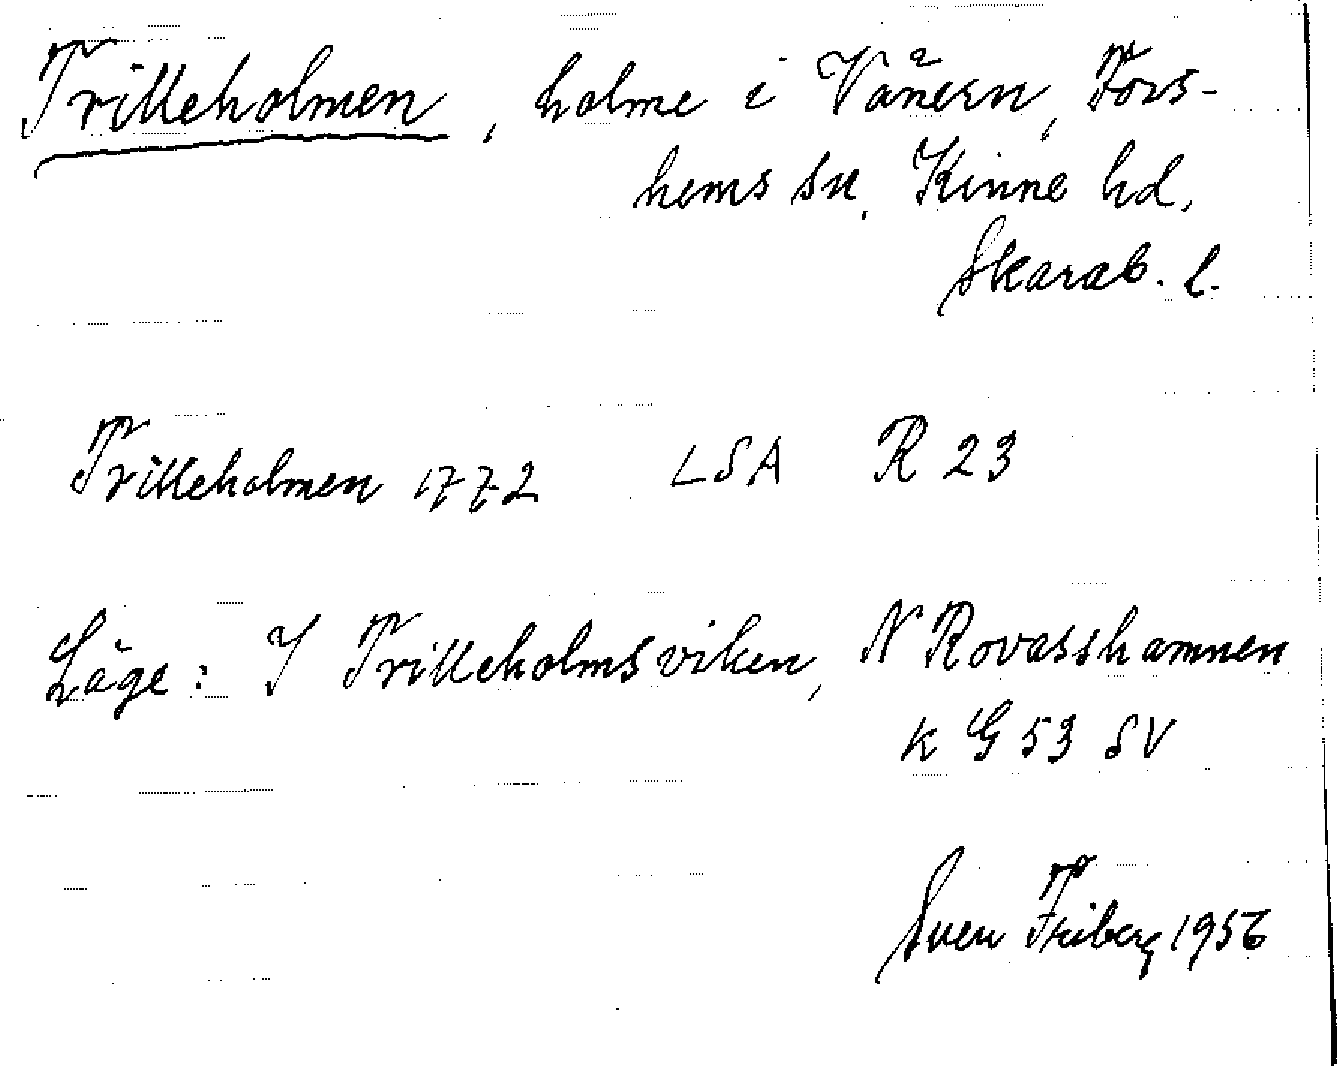 Trilleholmen, holme i Vänern, Fors-
hems sn, Kinne hd,
Skarab. l.
Trilleholmen 1772 LSA R 23
Läge: I Trilleholmsviken, N Rovasshamnen
k G 53 SV
Sven Friberg 1956